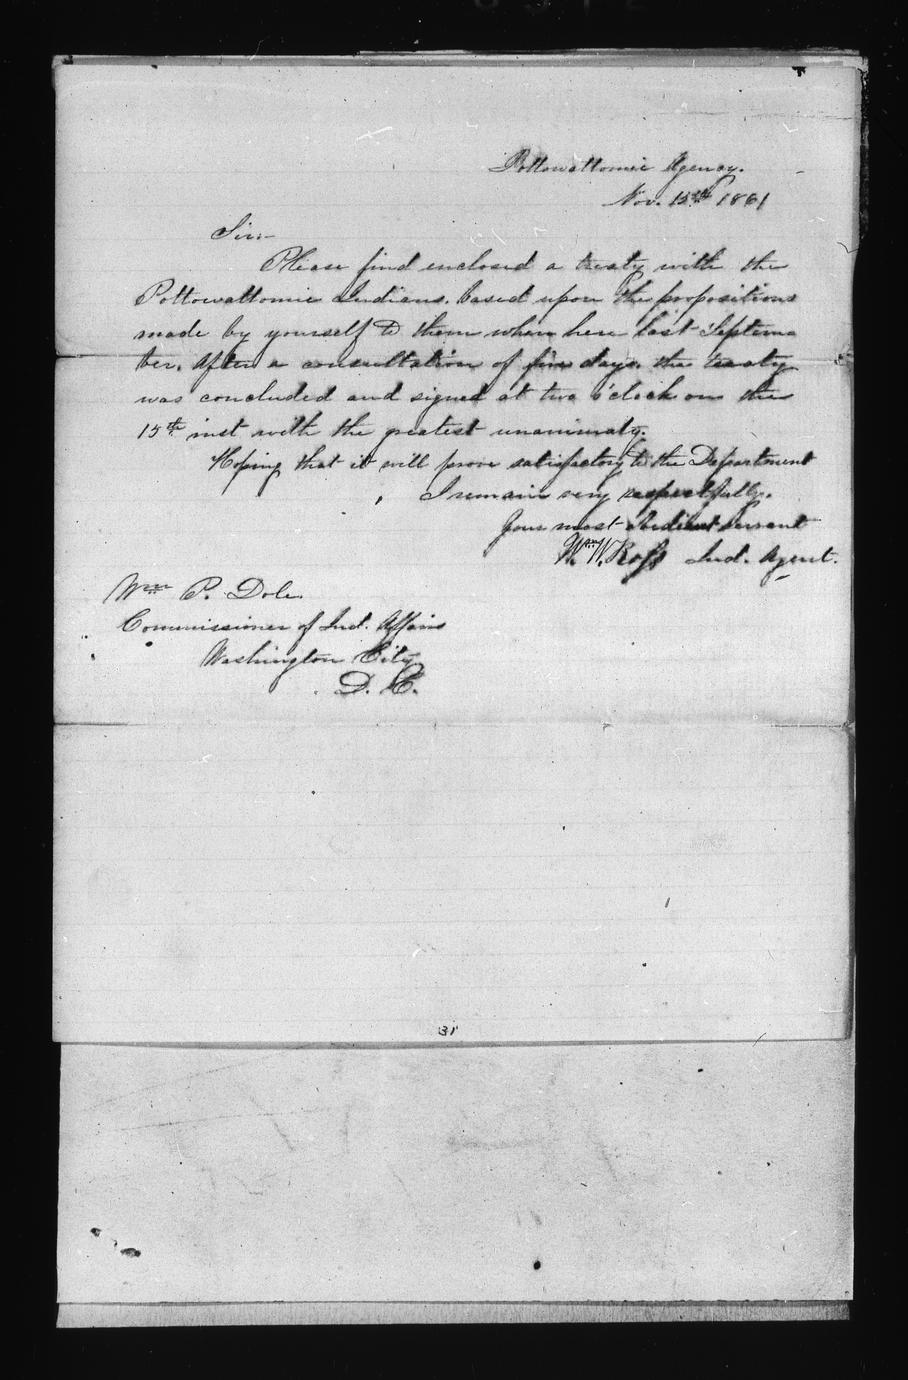 Pottowattomie Agency.
Nov. 15th 1861
Sir—
Please find enclosed a treaty with the
Pottowattomie Indians. based upon the propositions
made by yourself to them when here last Septem
ber. After a consultation of five days. the treaty
was concluded and signed at two o'clock on the
15th inst with the greatest unanimaty.
Hoping that it will prove satisfactory to the Department
I remain very respectfully.
Your most obedient Servant
Wm W. Ross Ind. Agent.
Wm P. Dole.
Commissioner of Ind. Affairs
Washington City
D. C.
31